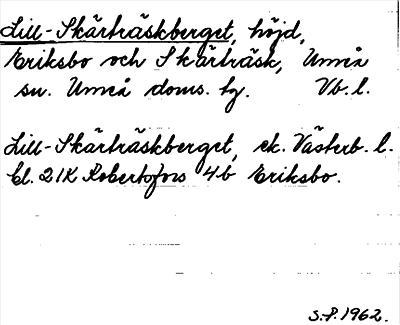 Lill-Skärträskberget, höjd,
Eriksbo och Skärträsk, Umeå
sn. Umeå doms. hg. Vb. l.
Lill-Skärträskberget, ek. Västerb. l.
bl. 21K Robertsfors 4b Eriksbo.
S.P. 1962.